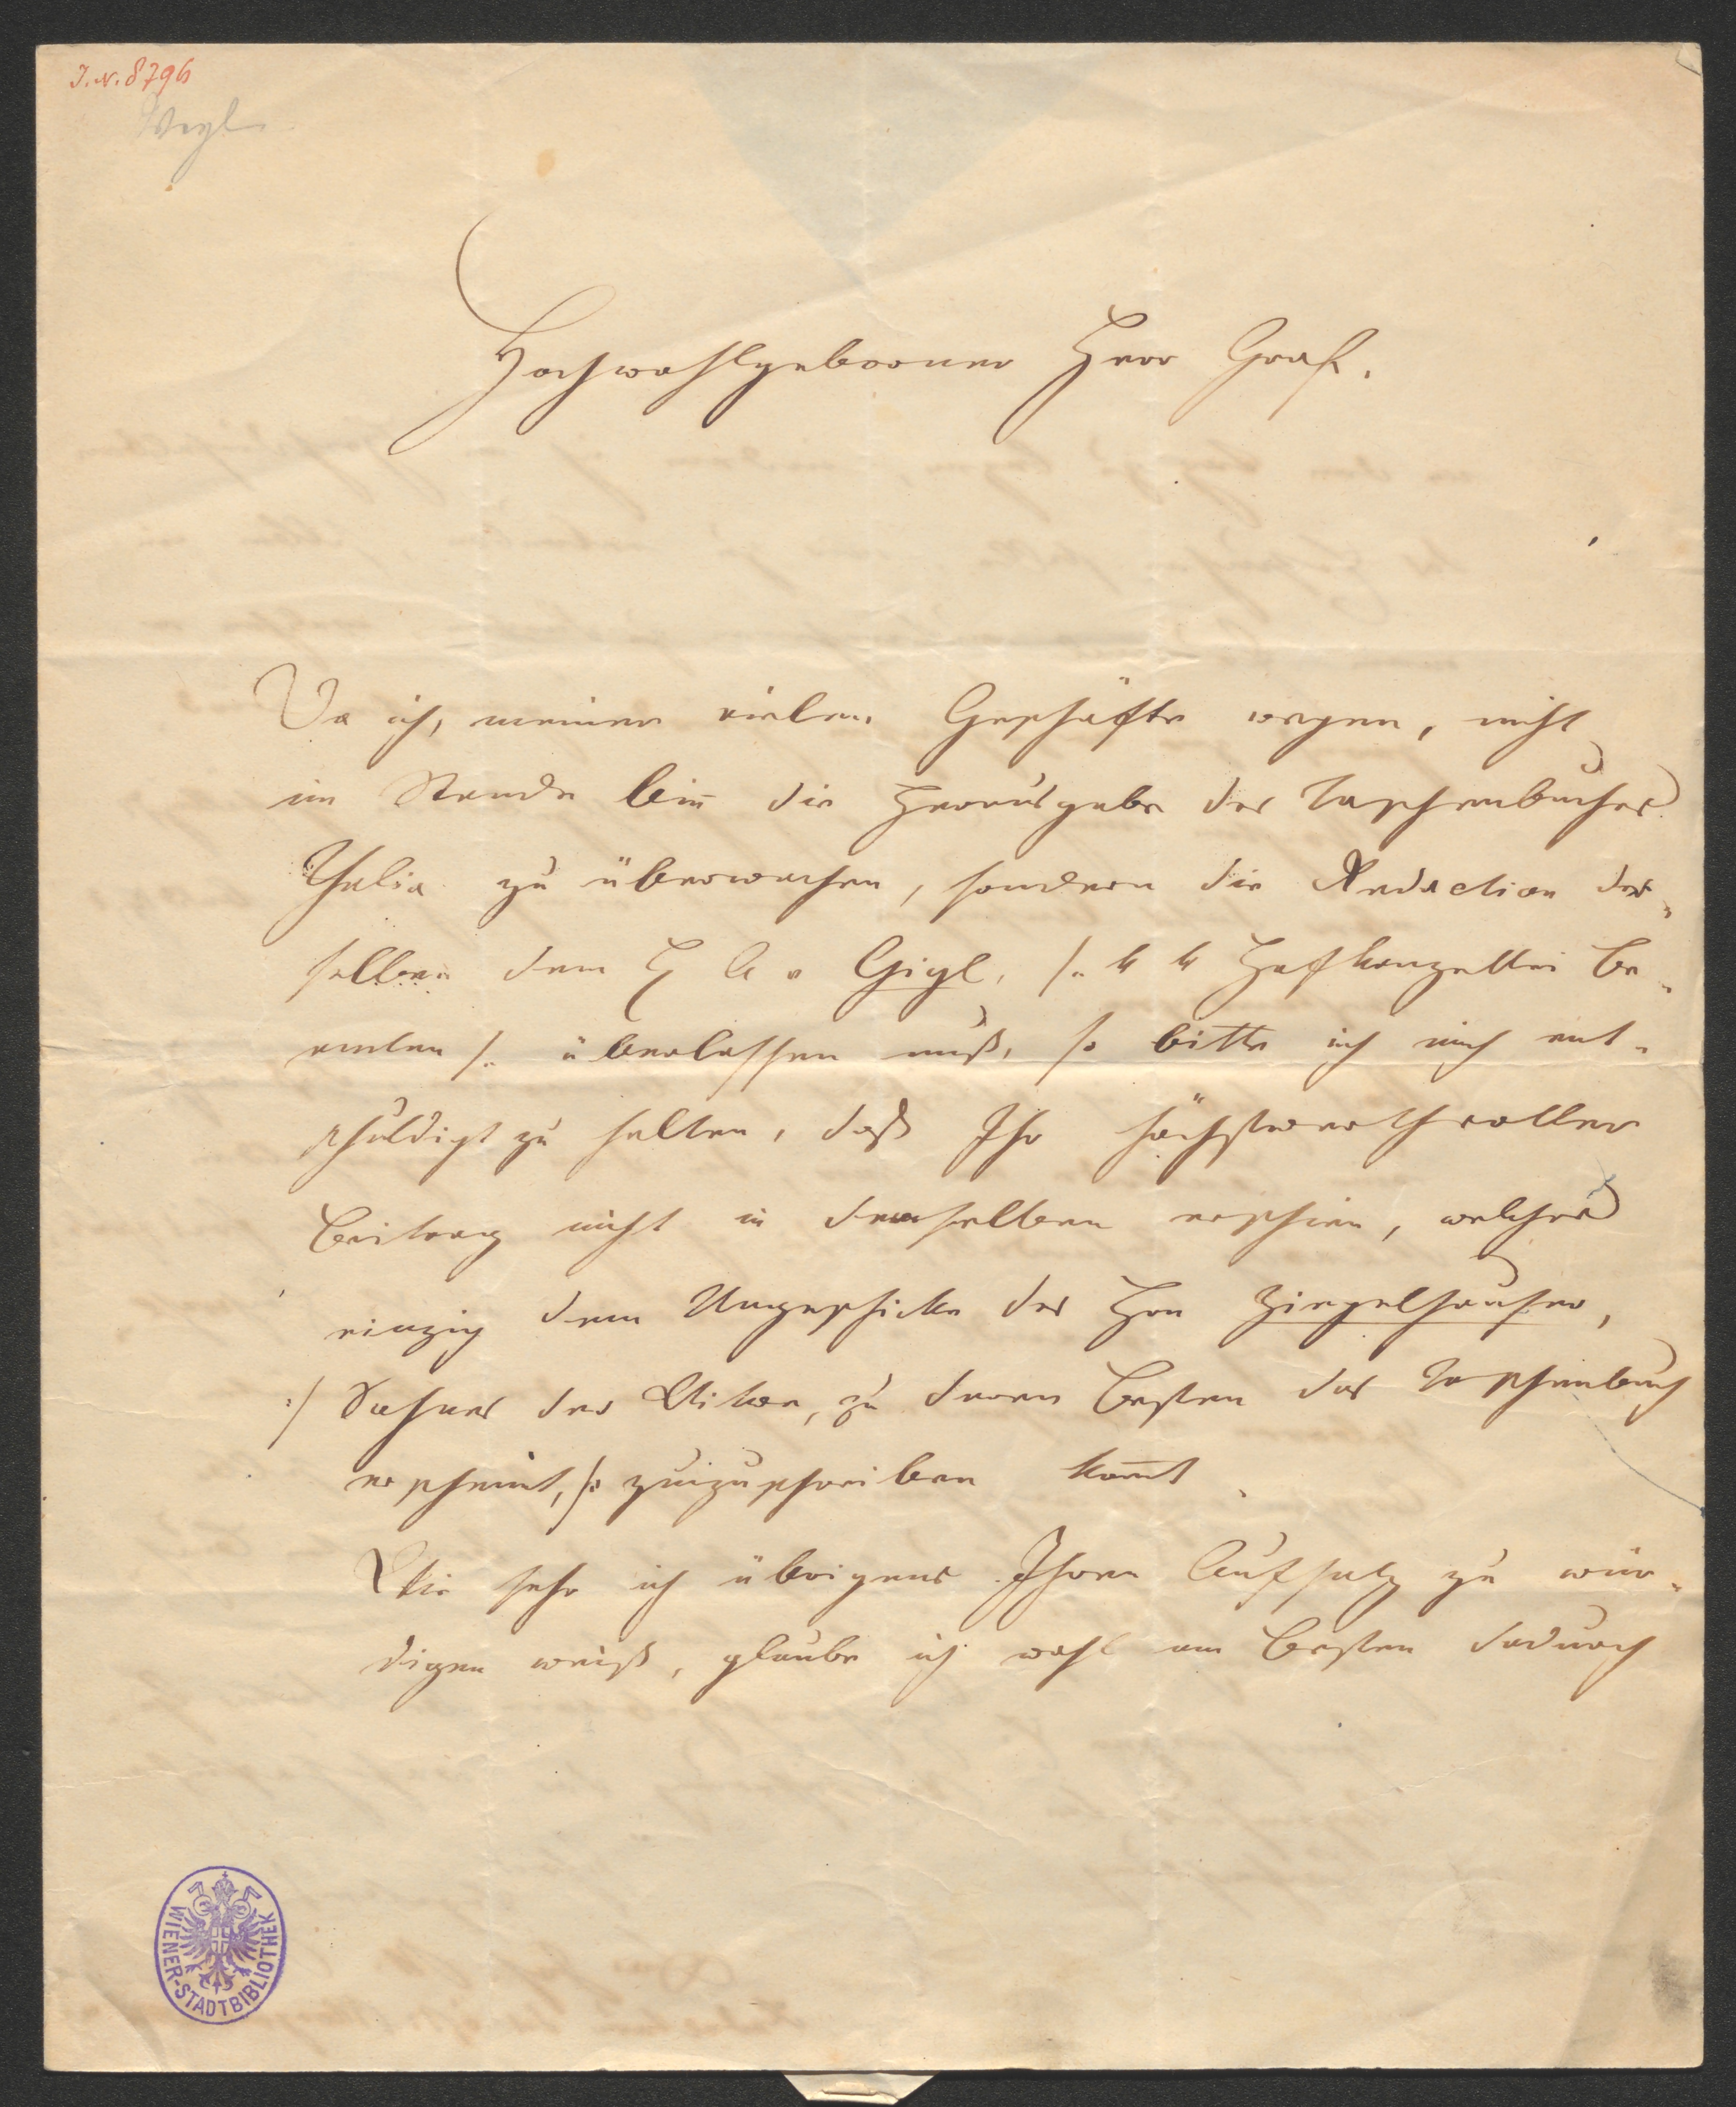 J.N. 8796
Weyl
Hochwohlgeborner Herr Graf.
Da ich, meiner vielen Geschäfte wegen, nicht
im Stande bin̄ die Herausgabe des Taschenbuches
Thalia zu überwachen, sondern die Redaction des-
selben dem H A v Gigl, /: k k Hofkanzellei Be-
amten /: überlassen muß, so bitte ich mich ent-
schuldigt zu halten, daß Ihr höchstwerthvoller
Beitrag nicht in demselben erschien, welches
einzig dem Ungeschicke des Hrn Ziegelhauser,
:/ Sohnes der Witwe, zu deren Besten das Taschenbuch
erscheint, /: zuzuschreiben kom̄t.
Wie sehr ich übrigens Ihren Aufsatz zu wür-
digen weiß, glaube ich wohl am Besten dadurch
WIENER-STADTBIBLIOTHEK